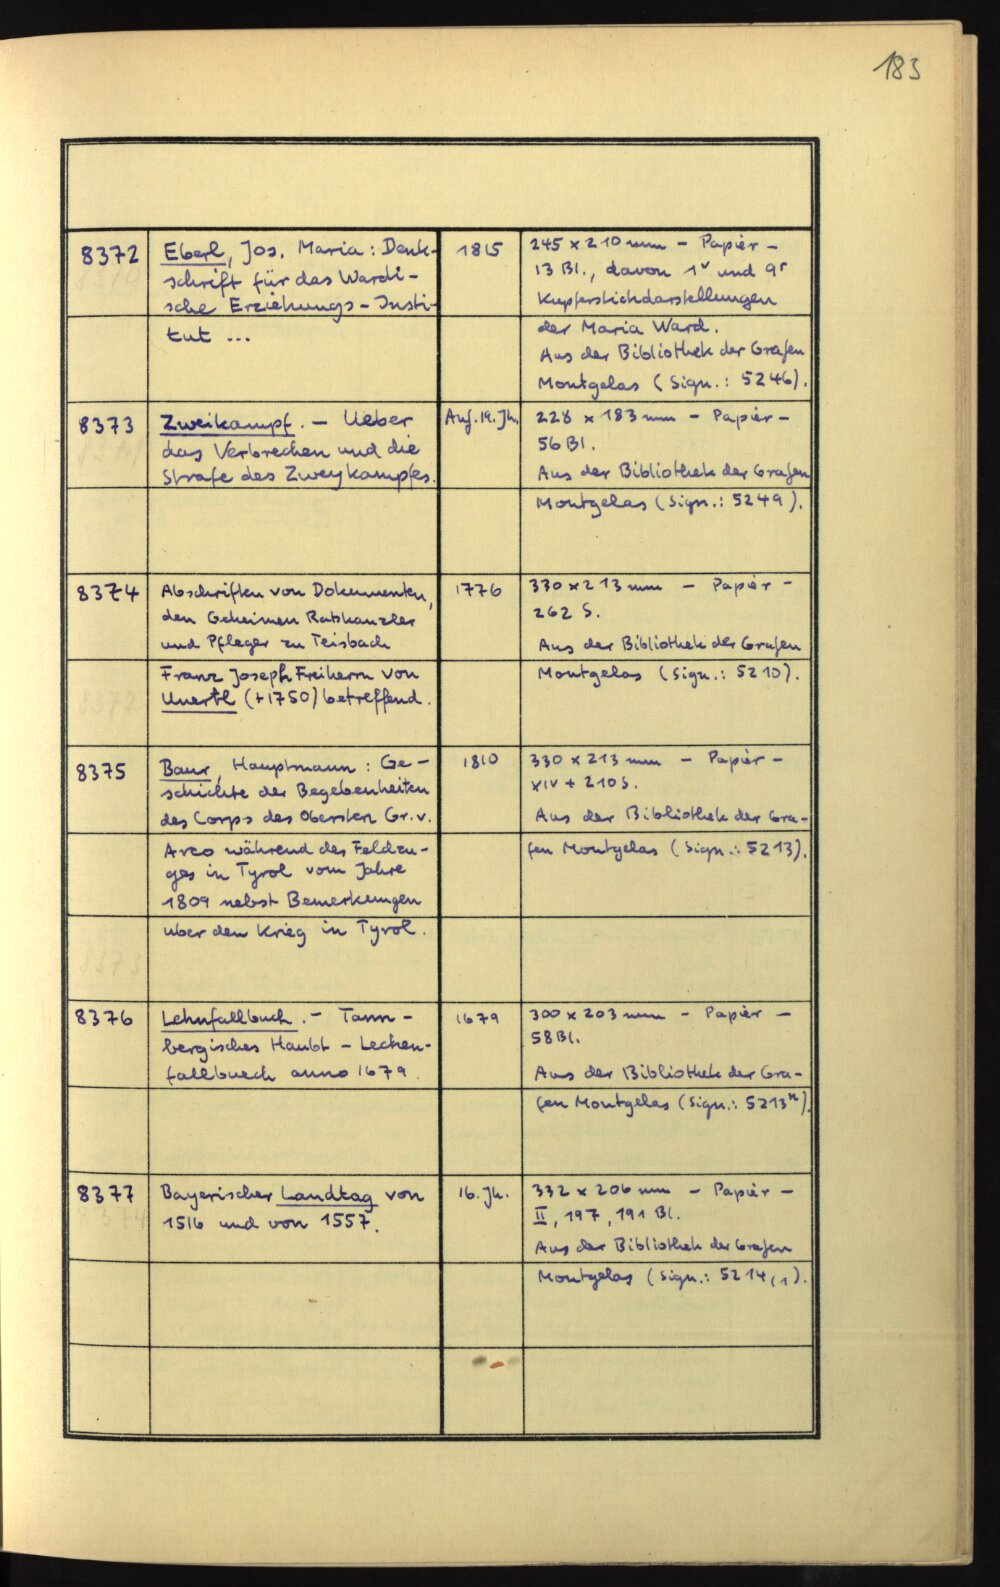 183
8372
Eberl, Jos. Maria: Denk-
schrift für das Wardi-
sche Erziehungs-Insti-
tut ...
1815
245 x 210 mm - Papier -
13 Bl., davon 1v und 9r
Kupferstichdarstellungen
der Maria Ward.
Aus der Bibliothek der Grafen
Montgelas (Sign.: 5246).
8373
Zweikampf. - Ueber
das Verbrechen und die
Strafe des Zweykampfes.
Anf. 19. Jh.
228 x 183 mm - Papier -
56 Bl.
Aus der Bibliothek der Grafen
Montgelas (Sign.: 5249).
8374
Abschriften von Dokumenten,
den Geheimen Ratskanzler
und Pfleger zu Teisbach
Franz Joseph Freiherrn von
Unertl (+1750) betreffend.
1776
330 x 213 mm - Papier -
262 S.
Aus der Bibliothek der Grafen
Montgelas (Sign.: 5210).
8375
Baur, Hauptmann: Ge-
schichte der Begebenheiten
des Corps des Obersten Gr. v.
Arco während des Feldzu-
ges in Tyrol vom Jahre
1809 nebst Bemerkungen
über den Krieg in Tyrol.
1810
330 x 213 mm - Papier -
XIV + 210 S.
Aus der Bibliothek der Gra-
fen Montgelas (Sign.: 5213).
8376
Lehnfallbuch. - Tann-
bergisches Haubt - Lechen-
fallbuech anno 1679.
1679
300 x 203 mm - Papier -
58 Bl.
Aus der Bibliothek der Gra-
fen Montgelas (Sign.: 5213n).
8377
Bayerischer Landtag von
1516 und von 1557.
16. Jh.
332 x 206 mm - Papier -
II, 197, 191 Bl.
Aus der Bibliothek der Grafen
Montgelas (Sign.: 5214(1).